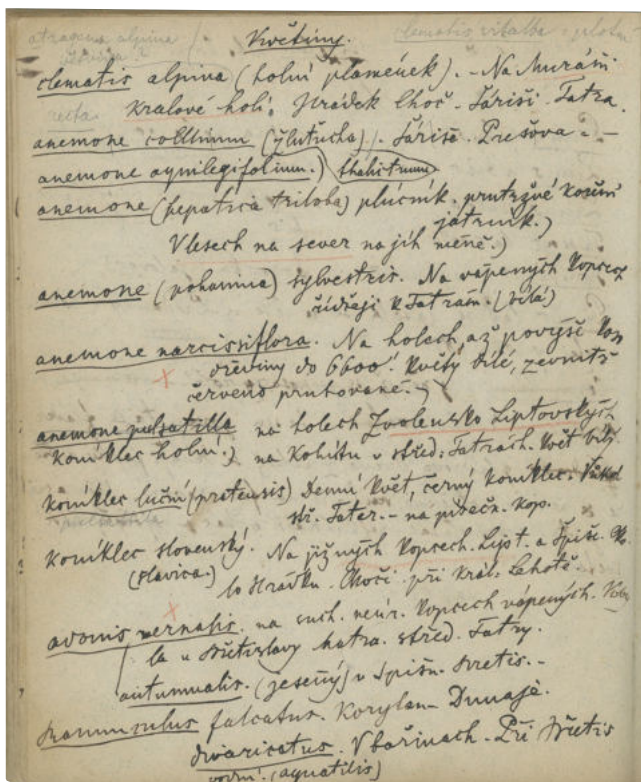 atragena alpina
clematis vitalba
Květiny.
clematis alpina (holní plamének). - Na Muráni
recta
Kralové holi. Hrádek Choč. Šáriši. Tatra.
anemone collinum (žlutucha). Šáriše. Prešova. -
anemone aquilegifolium.) thalictrum
anemone (hepatica triloba) plúcník. prutržné koření
jatrník.)
V lesech na sever na jih méně.)
anemone (pohanina) sylvestris. Na vápených kopcech
řídžeji k Tatrám. (bílá)
anemone narcissiflora. Na holech, až povýše
dřeviny do 6600! Květy bílé, zevnitř
červeno pruhované.)
anemone pulsatilla na holech Zvolensko Liptovských
koniklec holní.) na Kohútu v střed. Tatrách. Květ bílý.
koniklec luční (pratensis) Denní květ, černý koniklec.
pulsatilla
stř. Tater. - na písečn. kop.
koniklec slovenský. Na jižných kopcech. Lipt. a Spiš.
(slavica.) Hrádku. Choči. při Král. Lehotě.
adonis vernalis. na such. neúr. kopcech vápených.
la u Břetislavy Matra. střed. Tatry.
autumnalis. (jesenný) v Spišn.
Ranunculus falcatus. Dunaje.
divaricatus. V bařinach. Při
vodní. (aquatilis)